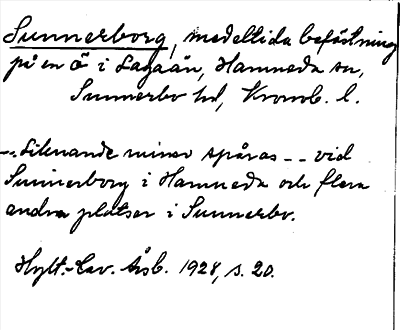 Sunnerborg, medeltida befästning
på en ö i Lagaån, Hamneda sn,
Sunnerbo hd, Kronob. l.
-- liknande minor spåras -- vid
Sunnerborg i Hamneda och flera
andra platser i Sunnerbo.
Hylt.-Cav. Årsb. 1928, s. 20.